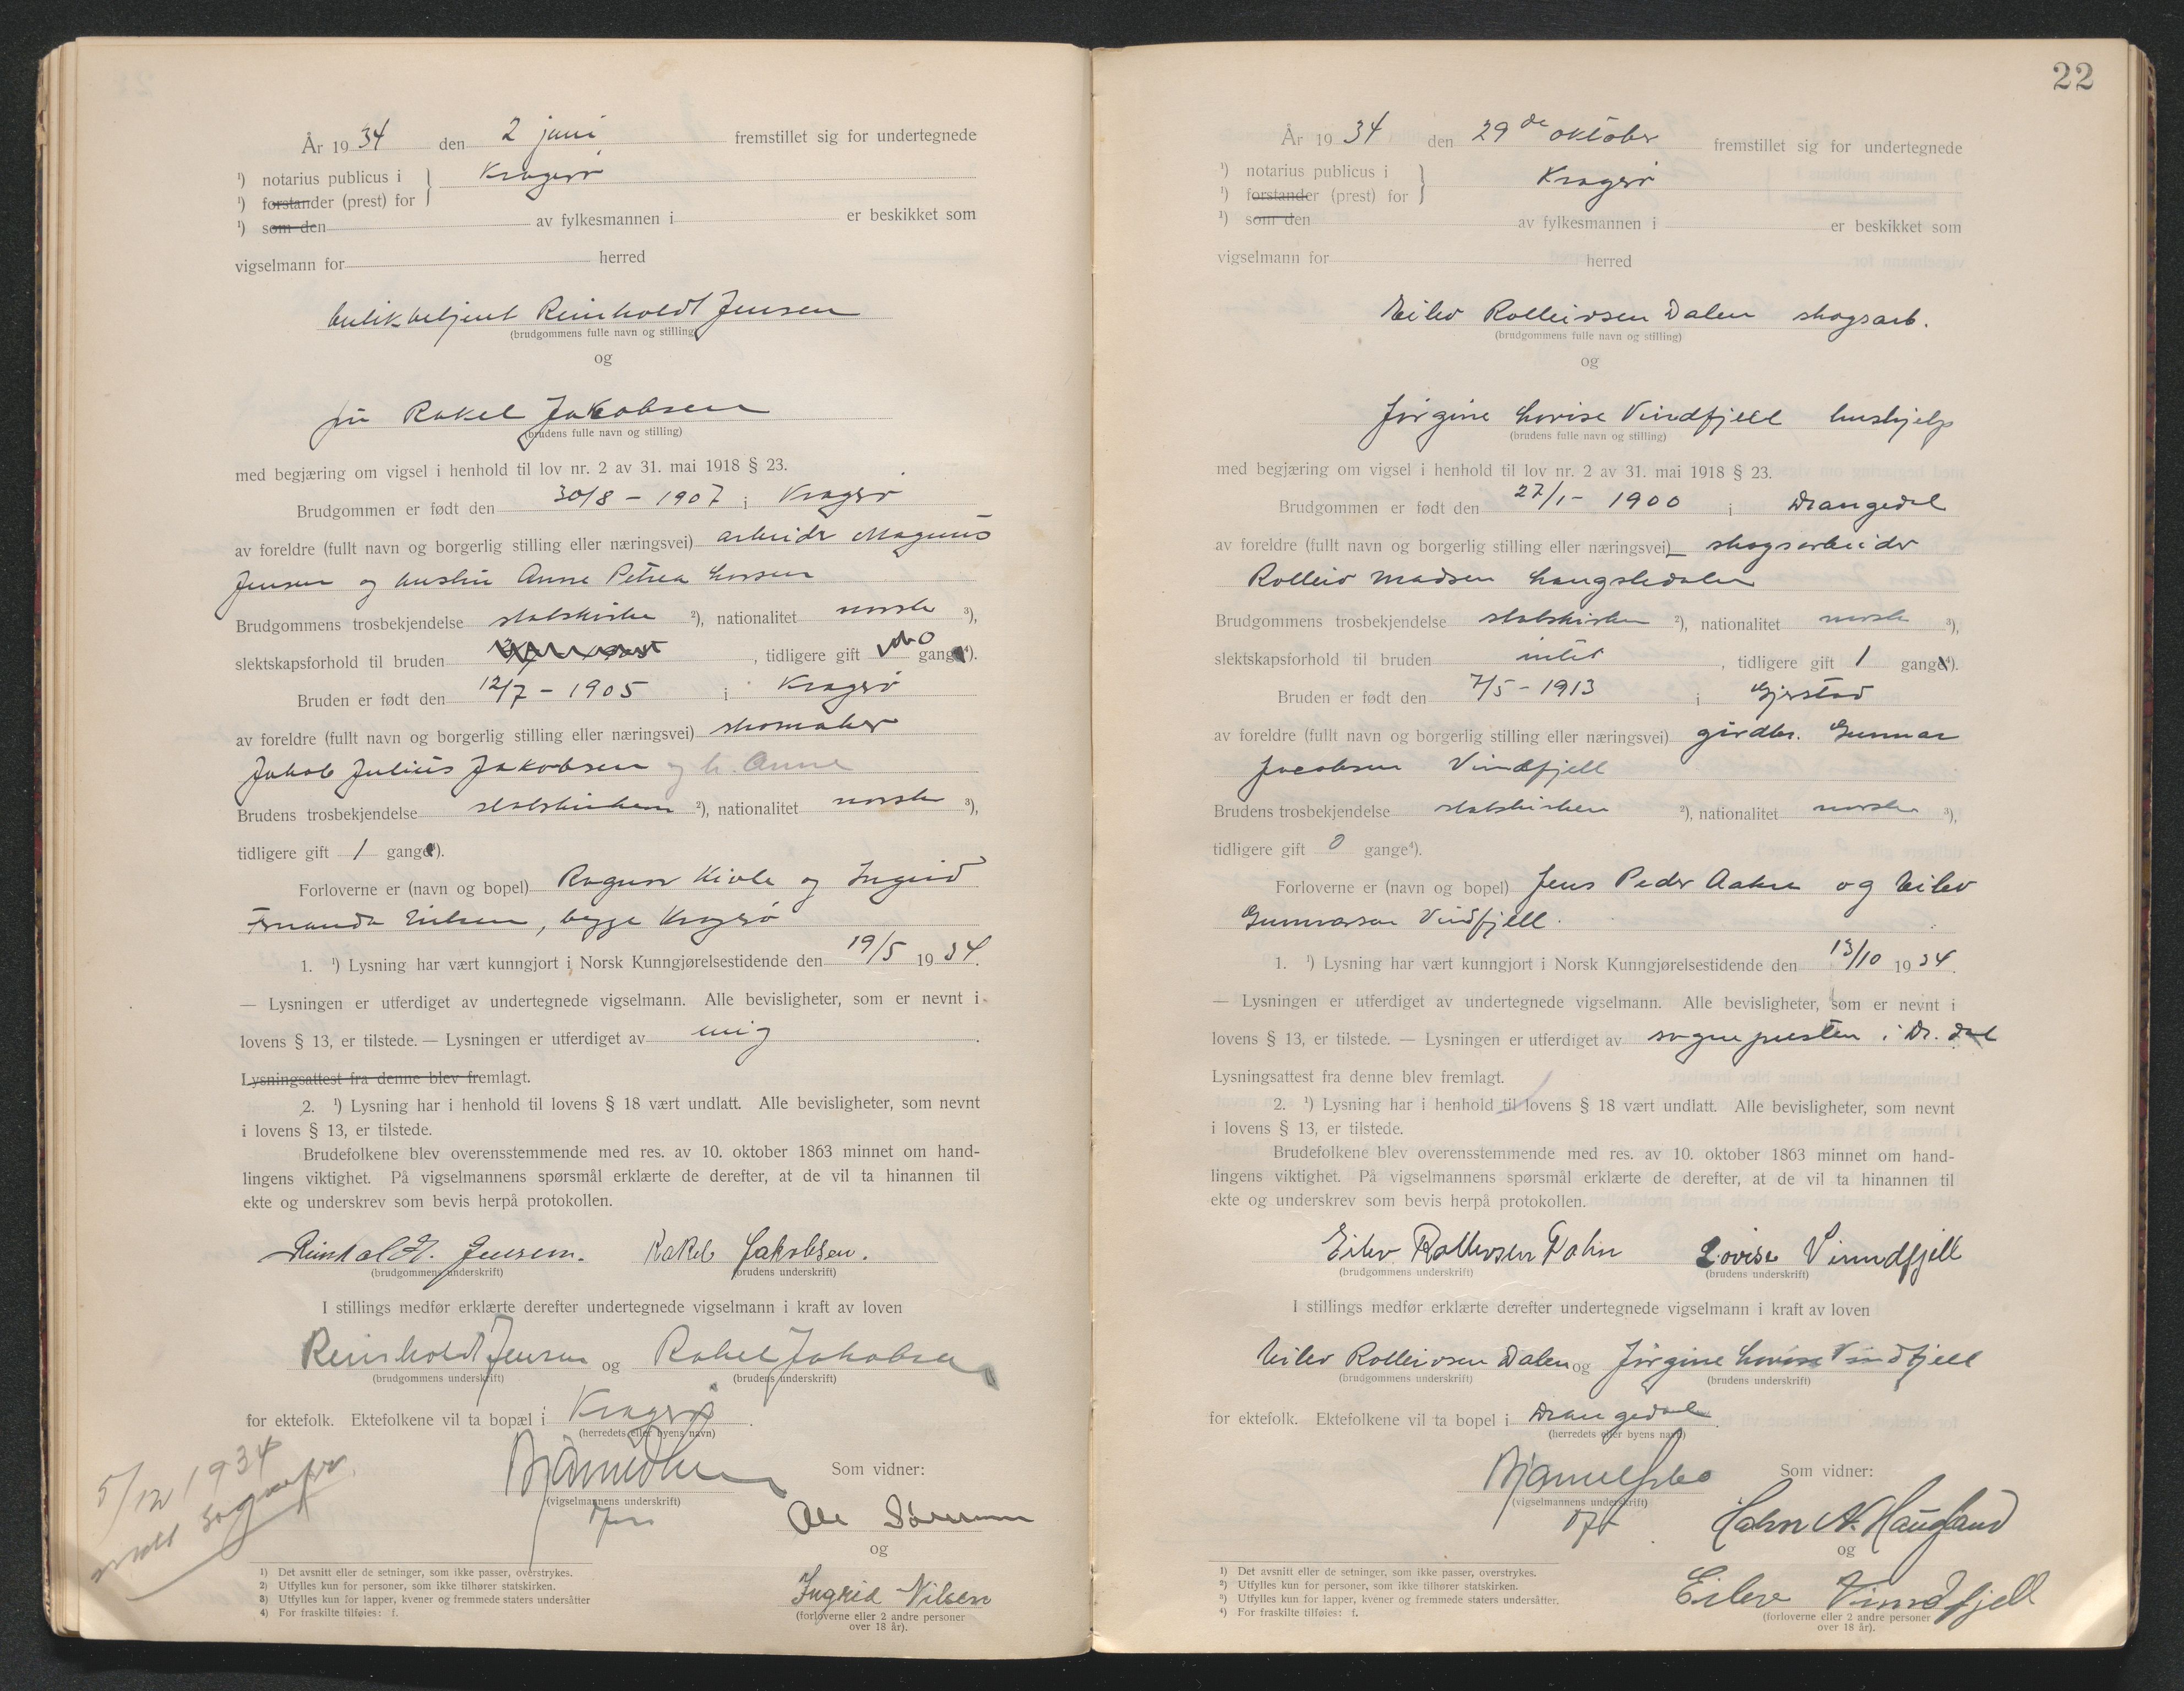 År 1934 den 2 juni fremstillet sig for undertegnede
¹) notarius publicus i } Kragerø
¹) forstander (prest) for
¹) som den av fylkesmannen i er beskikket som
vigselmann for herred
butikbetjent Reinholdt Jensen
(brudgommens fulle navn og stilling)
og
fru Rakel Jakobsen
(brudens fulle navn og stilling)
med begjæring om vigsel i henhold til lov nr. 2 av 31. mai 1918 § 23.
Brudgommen er født den 30/8 - 1907 i Kragerø
av foreldre (fullt navn og borgerlig stilling eller næringsvei) arbeider Magnus
Jensen og hustru Anne Petrea Larsen
Brudgommens trosbekjendelse statskirken ²), nationalitet norsk ³),
slektskapsforhold til bruden , tidligere gift 0 gang⁴).
Bruden er født den 12/7 - 1905 i Kragerø
av foreldre (fullt navn og borgerlig stilling eller næringsvei) skomaker
Jakob Julius Jakobsen og h. Anna
Brudens trosbekjendelse statskirken ²), nationalitet norsk ³),
tidligere gift 1 gang⁴).
Forloverne er (navn og bopel) Ragnar Kiøle og Ingrid
Fernanda Nilsen, begge Kragerø
1. ¹) Lysning har vært kunngjort i Norsk Kunngjørelsestidende den 19/5 1934.
— Lysningen er utferdiget av undertegnede vigselmann. Alle bevisligheter, som er nevnt i
lovens § 13, er tilstede. — Lysningen er utferdiget av mig .
Lysningsattest fra denne blev fremlagt.
2. ¹) Lysning har i henhold til lovens § 18 vært undlatt. Alle bevisligheter, som nevnt
i lovens § 13, er tilstede.
Brudefolkene blev overensstemmende med res. av 10. oktober 1863 minnet om hand-
lingens viktighet. På vigselmannens spørsmål erklærte de derefter, at de vil ta hinannen til
ekte og underskrev som bevis herpå protokollen.
Reinholdt Jensen. Rakel Jakobsen.
(brudgommens underskrift) (brudens underskrift)
I stillings medfør erklærte derefter undertegnede vigselmann i kraft av loven
Reinholdt Jensen og Rakel Jakobsen
(brudgommens underskrift) (brudens underskrift)
for ektefolk. Ektefolkene vil ta bopæl i Kragerø .
(herredets eller byens navn)
5/12 1934
Som vidner:
(vigselmannens underskrift)
og
Ingrid Nilsen
(forloverne eller 2 andre personer
over 18 år).
1) Det avsnitt eller de setninger, som ikke passer, overstrykes.
2) Utfylles kun for personer, som ikke tilhører statskirken.
3) Utfylles kun for lapper, kvener og fremmede staters undersåtter
4) For fraskilte tilføies: f.
22
År 1934 den 29de oktober fremstillet sig for undertegnede
¹) notarius publicus i } Kragerø
¹) forstander (prest) for
¹) som den av fylkesmannen i er beskikket som
vigselmann for herred
Eilev Rolleivsen Dalen skogsarb.
(brudgommens fulle navn og stilling)
og
Jørgine Lovise Vindfjell hushjelp
(brudens fulle navn og stilling)
med begjæring om vigsel i henhold til lov nr. 2 av 31. mai 1918 § 23.
Brudgommen er født den 27/1 - 1900 i Drangedal
av foreldre (fullt navn og borgerlig stilling eller næringsvei) skogsarbeider
Rolleiv Madsen Laugsledalen
Brudgommens trosbekjendelse statskirken ²), nationalitet norsk ³),
slektskapsforhold til bruden intet , tidligere gift 1 gang⁴).
Bruden er født den 7/5 - 1913 i Gjerstad
av foreldre (fullt navn og borgerlig stilling eller næringsvei) gårdbr. Gunnar
Jacobsen Vindfjell
Brudens trosbekjendelse statskirken ²), nationalitet norsk ³),
tidligere gift 0 gange⁴).
Forloverne er (navn og bopel) Jens Peder Aakre og Eilev
Gunnarsen Vindfjell.
1. ¹) Lysning har vært kunngjort i Norsk Kunngjørelsestidende den 13/10 1934.
— Lysningen er utferdiget av undertegnede vigselmann. Alle bevisligheter, som er nevnt i
lovens § 13, er tilstede. — Lysningen er utferdiget av sognepresten i Dr. dal
Lysningsattest fra denne blev fremlagt.
2. ¹) Lysning har i henhold til lovens § 18 vært undlatt. Alle bevisligheter, som nevnt
i lovens § 13, er tilstede.
Brudefolkene blev overensstemmende med res. av 10. oktober 1863 minnet om hand-
lingens viktighet. På vigselmannens spørsmål erklærte de derefter, at de vil ta hinannen til
ekte og underskrev som bevis herpå protokollen.
Eilev Rolleivsen Dalen Lovise Vinndfjell
(brudgommens underskrift) (brudens underskrift)
I stillings medfør erklærte derefter undertegnede vigselmann i kraft av loven
Eilev Rolleivsen Dalen og Jørgine Lovise Vindfjell
(brudgommens underskrift) (brudens underskrift)
for ektefolk. Ektefolkene vil ta bopel i Drangedal .
(herredets eller byens navn)
Som vidner:
(vigselmannens underskrift)
Halvor N. Haugland
og
Eilev Vinndfjell
(forloverne eller 2 andre personer
over 18 år).
¹) Det avsnitt eller de setninger, som ikke passer, overstrykes.
²) Utfylles kun for personer, som ikke tilhører statskirken.
³) Utfylles kun for lapper, kvener og fremmede staters undersåtter.
⁴) For fraskilte tilføies: f.